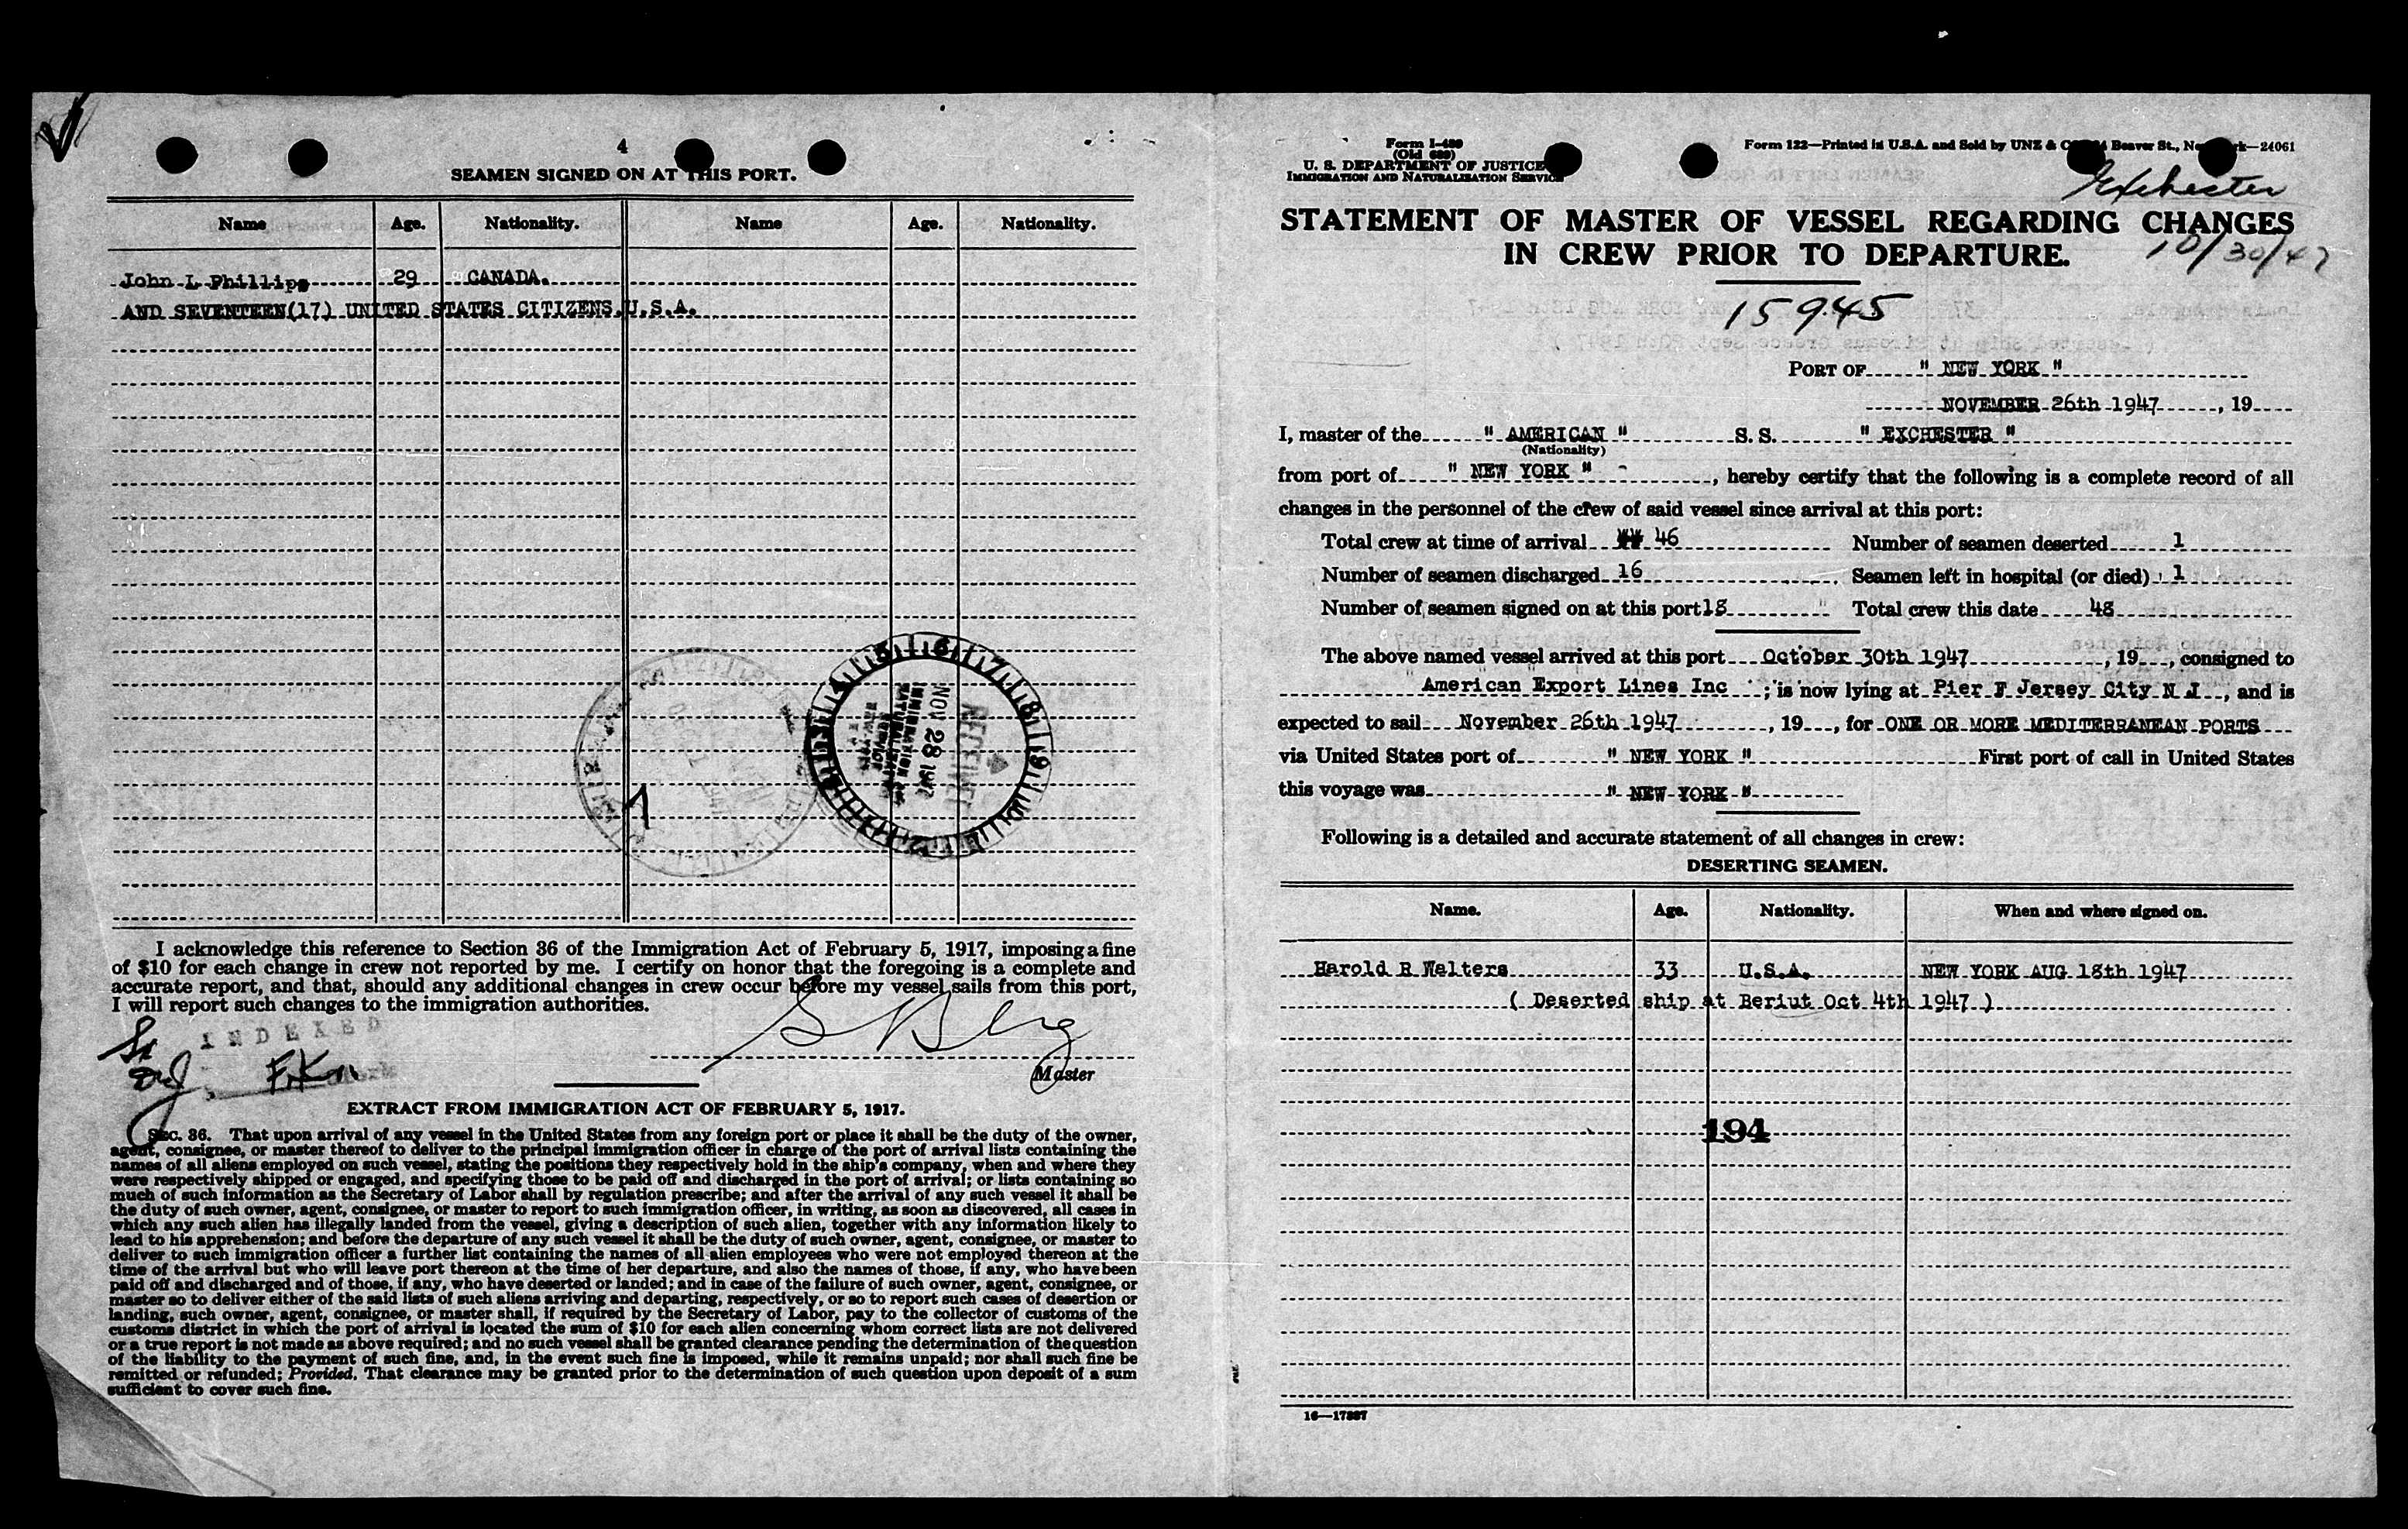 4
SEAMEN SIGNED ON AT THIS PORT.
Name Age. Nationality. Name Age. Nationality.
John L Phillips 29 CANADA.
AND SEVENTEEN(17) UNITED STATES CITIZENS.U.S.A.
RECEIVED
NOV 28 1947
IMMIGRATION AND
I acknowledge this reference to Section 36 of the Immigration Act of February 5, 1917, imposing a fine
of $10 for each change in crew not reported by me. I certify on honor that the foregoing is a complete and
accurate report, and that, should any additional changes in crew occur before my vessel sails from this port,
I will report such changes to the immigration authorities.
INDEXED
S Berg
Master
EXTRACT FROM IMMIGRATION ACT OF FEBRUARY 5, 1917.
SEC. 36. That upon arrival of any vessel in the United States from any foreign port or place it shall be the duty of the owner,
agent, consignee, or master thereof to deliver to the principal immigration officer in charge of the port of arrival lists containing the
names of all aliens employed on such vessel, stating the positions they respectively hold in the ship's company, when and where they
were respectively shipped or engaged, and specifying those to be paid off and discharged in the port of arrival; or lists containing so
much of such information as the Secretary of Labor shall by regulation prescribe; and after the arrival of any such vessel it shall be
the duty of such owner, agent, consignee, or master to report to such immigration officer, in writing, as soon as discovered, all cases in
which any such alien has illegally landed from the vessel, giving a description of such alien, together with any information likely to
lead to his apprehension; and before the departure of any such vessel it shall be the duty of such owner, agent, consignee, or master to
deliver to such immigration officer a further list containing the names of all alien employees who were not employed thereon at the
time of the arrival but who will leave port thereon at the time of her departure, and also the names of those, if any, who have been
paid off and discharged and of those, if any, who have deserted or landed; and in case of the failure of such owner, agent, consignee, or
master so to deliver either of the said lists of such aliens arriving and departing, respectively, or so to report such cases of desertion or
landing, such owner, agent, consignee, or master shall, if required by the Secretary of Labor, pay to the collector of customs of the
customs district in which the port of arrival is located the sum of $10 for each alien concerning whom correct lists are not delivered
or a true report is not made as above required; and no such vessel shall be granted clearance pending the determination of the question
of the liability to the payment of such fine, and, in the event such fine is imposed, while it remains unpaid; nor shall such fine be
remitted or refunded; Provided, That clearance may be granted prior to the determination of such question upon deposit of a sum
sufficient to cover such fine.
Form I-489
(Old 689)
U. S. DEPARTMENT OF JUSTICE
IMMIGRATION AND NATURALIZATION SERVICE
Form 122—Printed in U.S.A. and Sold by UNZ & Beaver St., 24061
Exchester
STATEMENT OF MASTER OF VESSEL REGARDING CHANGES
IN CREW PRIOR TO DEPARTURE.
10/30/47
15945
PORT OF " NEW YORK "
NOVEMBER 26th 1947, 19
I, master of the " AMERICAN " S. S. " EXCHESTER "
(Nationality)
from port of " NEW YORK ", hereby certify that the following is a complete record of all
changes in the personnel of the crew of said vessel since arrival at this port:
Total crew at time of arrival 46 Number of seamen deserted 1
Number of seamen discharged 16 Seamen left in hospital (or died) 1
Number of seamen signed on at this port 18 Total crew this date 48
The above named vessel arrived at this port October 30th 1947, 19, consigned to
American Export Lines Inc; is now lying at Pier F Jersey City N J, and is
expected to sail November 26th 1947, 19, for ONE OR MORE MEDITERRANEAN PORTS
via United States port of " NEW YORK " First port of call in United States
this voyage was " NEW YORK "
Following is a detailed and accurate statement of all changes in crew:
DESERTING SEAMEN.
Name. Age. Nationality. When and where signed on.
Harold R Walters 33 U.S.A. NEW YORK AUG 18th 1947
( Deserted ship at Beriut Oct 4th 1947 )
194
16—17887